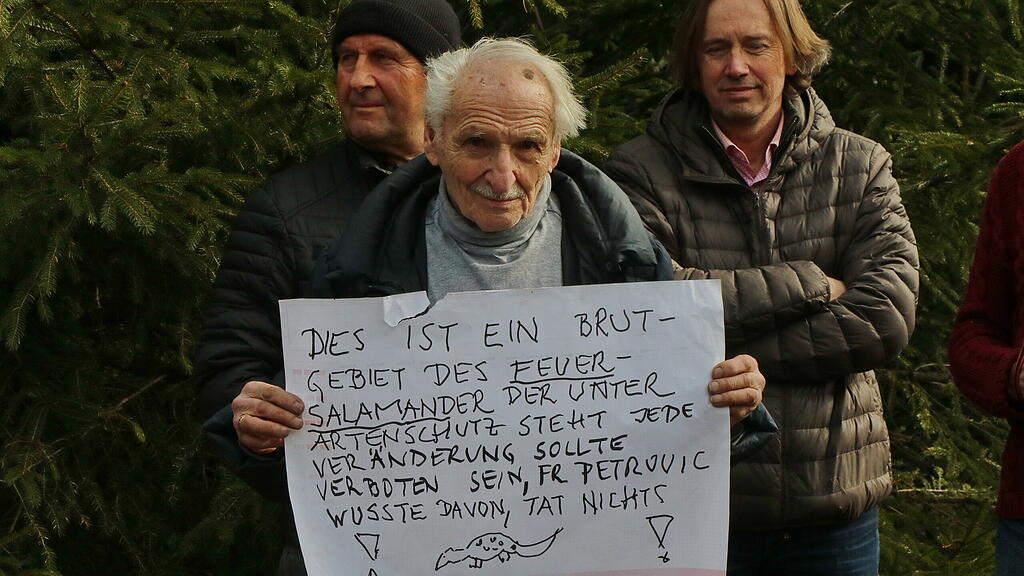 DIES IST EIN BRUT-
GEBIET DES FEUER-
SALAMANDER DER UNTER
ARTENSCHUTZ STEHT JEDE
VERÄNDERUNG SOLLTE
VERBOTEN SEIN, FR PETROVIC
WUSSTE DAVON, TAT NICHTS